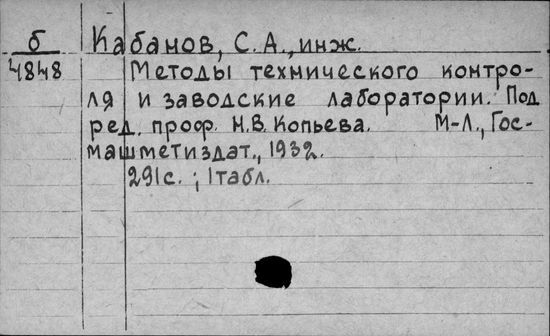 б
4848
Кабанов, С. А., инж.
Методы технического контро-
ля и заводские лаборатории. Под
ред. проф. Н.В. Копьева. М-Л., Гос-
машметиздат., 1932.
291с. ; 1табл.